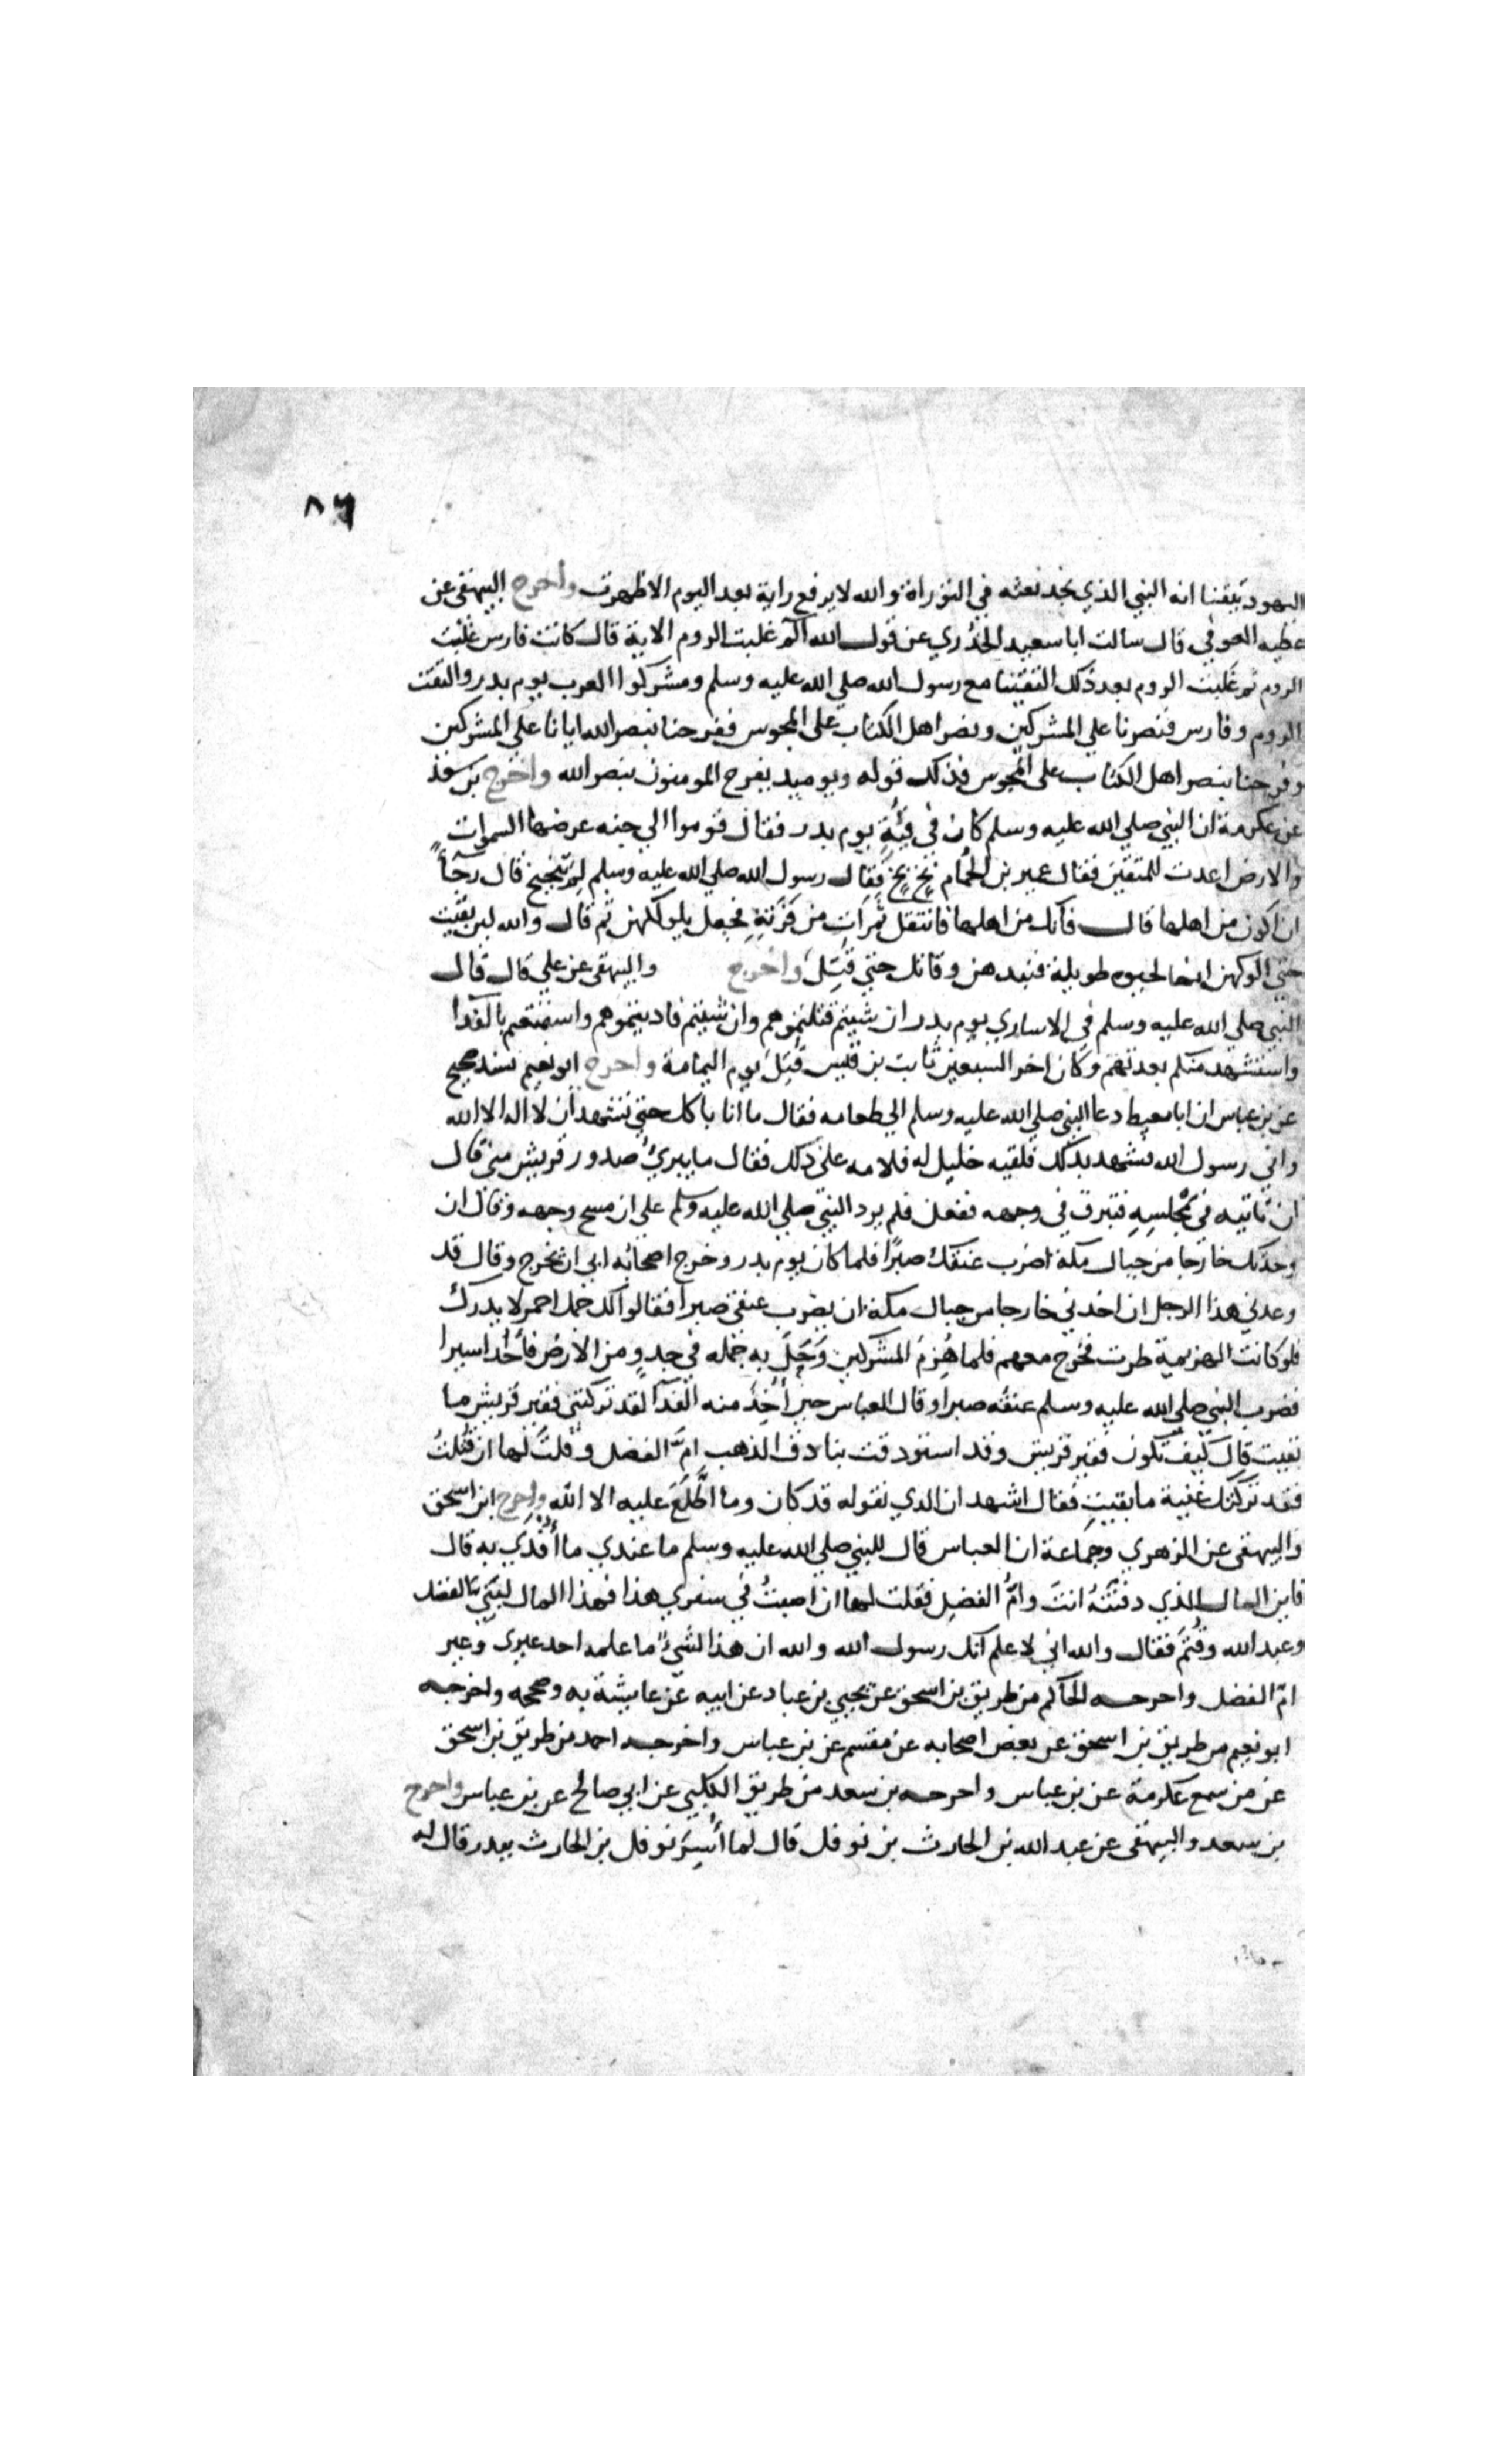 ٨٦
اليهود تيقنا انه النبي الذي نجد نعته في التوراة والله لا يرفع راية بعد اليوم الا ظهرت واخرج البيهقي عن
عطيه العوفي قال سالت ابا سعيد الخدري عن قول الله آلم غلبت الروم الاية قال كانت فارس غلبت
الروم ثم غلبت الروم بعد ذلك التقينا مع رسول الله صلي الله عليه وسلم ومشركوا العرب يوم بدر والتقت
الروم وفارس فنصرنا علي المشركين ونصر اهل الكتاب على المجوس ففرحنا بنصر الله ايانا علي المشركين
وفرحنا بنصر اهل الكتاب على المجوس فذلك قوله ويوميد يفرح المومنون بنصر الله واخرج بن سعد
عن عكرمة ان النبي صلي الله عليه وسلم كان في قبة يوم بدر فقال قوموا الي جنه عرضها السموات
والارض اعدت للمتقين فقال عمير بن الحُمام بخ بخ فقال رسول الله صلي الله عليه وسلم لم تبخبخ قال رجآءً
ان اكون من اهلها قال فانك من اهلها فانتقل تمرات من قرنه فجعل يلوكهن ثم قال والله لين بقيت
حتى الوكهن انها لحيوه طويلة فنبدهن وقاتل حتي قُتِلَ واخرج والبيهقي عن علي قال قال
النبي صلي الله عليه وسلم في الاساري يوم بدر ان شيتم قتلتموهم وان شيتم فاديتموهم واستمتعم بالفدا
واستشهد منكم بعدتهم وكان اخر السبعين ثابت بن قيس قُتِلَ يوم اليمامة واخرج ابو نعيم بسند صحيح
عن بن عباس ان ابا معيط دعا النبي صلي الله عليه وسلم الي طعامه فقال ما انا باكل حتي تشهد ان لا اله الا الله
واني رسول الله فشهد بذلك فلقيه خليل له فلامه على ذلك فقال ما يبرئ صدور قريش مني قال
ان تاتيه في مجلسِهِ فتبزق في وجهه ففعل فلم يرد النبي صلي الله عليه وسلم علي ان مسح وجهه وقال ان
وجدتك خارجا من جبال مكة اضرب عنقك صبرًا فلما كان يوم بدر وخرج اصحابه ابي ان يخرج وقال قد
وعدني هذا الرجل ان اخدني خارجا من جبال مكة ان يضرب عنقي صبرا فقالوا لك جمل احمر لا يدرك
فلو كانت الهزيمة طرت فخرج معهم فلما هُزِمَ المشركين وَحَلَ به جمله في جددٍ من الارض فأُخدا سيرا
فضرب النبي صلي الله عليه وسلم عنقه صبرا وقال العباس حين أُخِذَ منه الفدآ لقد تركتني فقير قريش ما
بقيت قال كيف تكون فقير قريش وقد استودقت بنادق الذهب امّ الفضل وقلتَ لها ان قُتلتُ
فقد تركتك غنية ما بقيتِ فقال اشهد ان الدي تقوله قد كان وما اطَّلَعَ عليه الا الله واخرج ابن اسحق
والبيهقي عن الزهري وجماعة ان العباس قال للنبي صلي الله عليه وسلم ما عندي ما أُفدي به قال
فاين المال الذي دفنتَهُ انتَ وامُّ الفضل فقلت لها ان اصبتُ في سفري هذا فهذا المال لبنيّ الفضل
وعبد الله وقُثَم فقال والله اني لا علم انك رسول الله والله ان هذا الشيء ما علمه احد غيري وغير
امّ الفضل واخرجه الحاكم من طريق بن اسحق عن يحيي بن عباد عن ابيه عن عايشة به وصححه واخرجه
ابو نعيم من طريق بن اسحق عن بعض اصحابه عن مقسم عن بن عباس واخرجه احمد من طريق بن اسحق
عن من سمع عكرمة عن بن عباس واخرجه بن سعد من طريق الكلبي عن ابي صالح عن بن عباس واخرج
بن سعد والبيهقي عن عبد الله بن الحارث بن نوفل قال لما أُسِرَ نوفل بن الحارث ببدر قال له